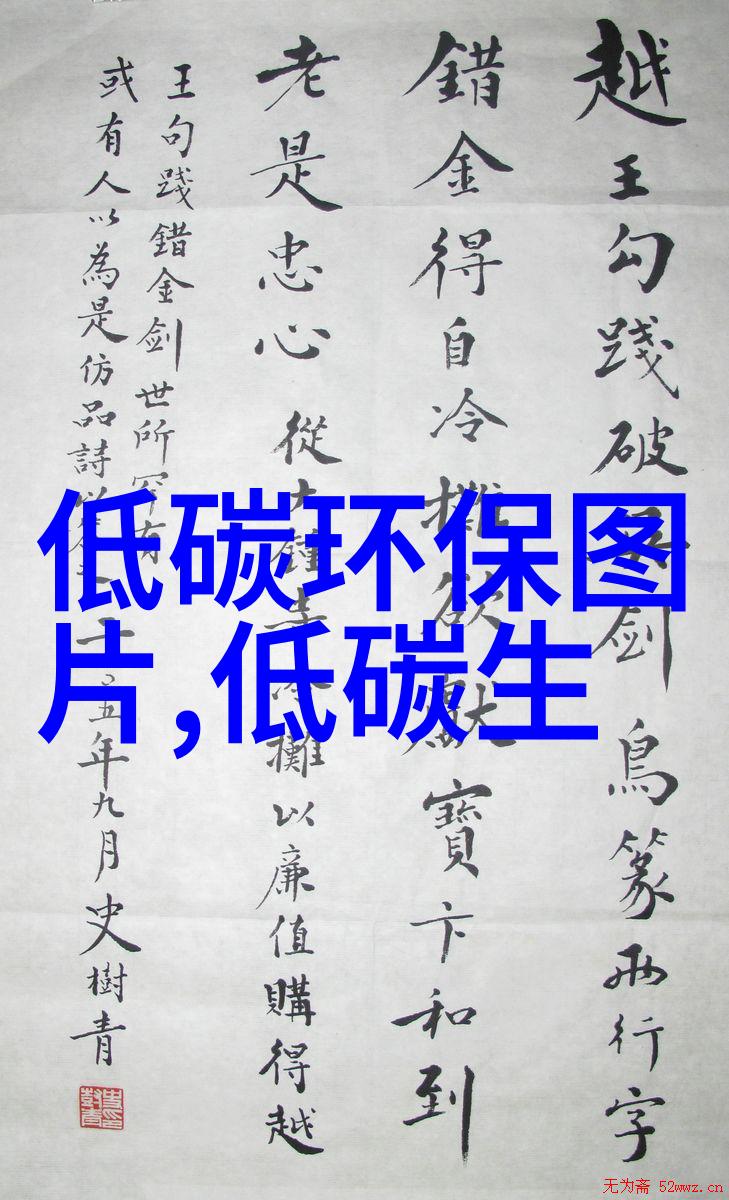 越王勾踐破剑鳥篆兩行字
錯金得自冷攤欲獻寶卞和到
老是忠心 從大鐘寺冷攤以廉值購得越
王句踐錯金剑世所罕有
或有人以為是仿品詩以十五年九月史樹青
低碳环保图
片,低碳生
无为斋 52wwz.cn